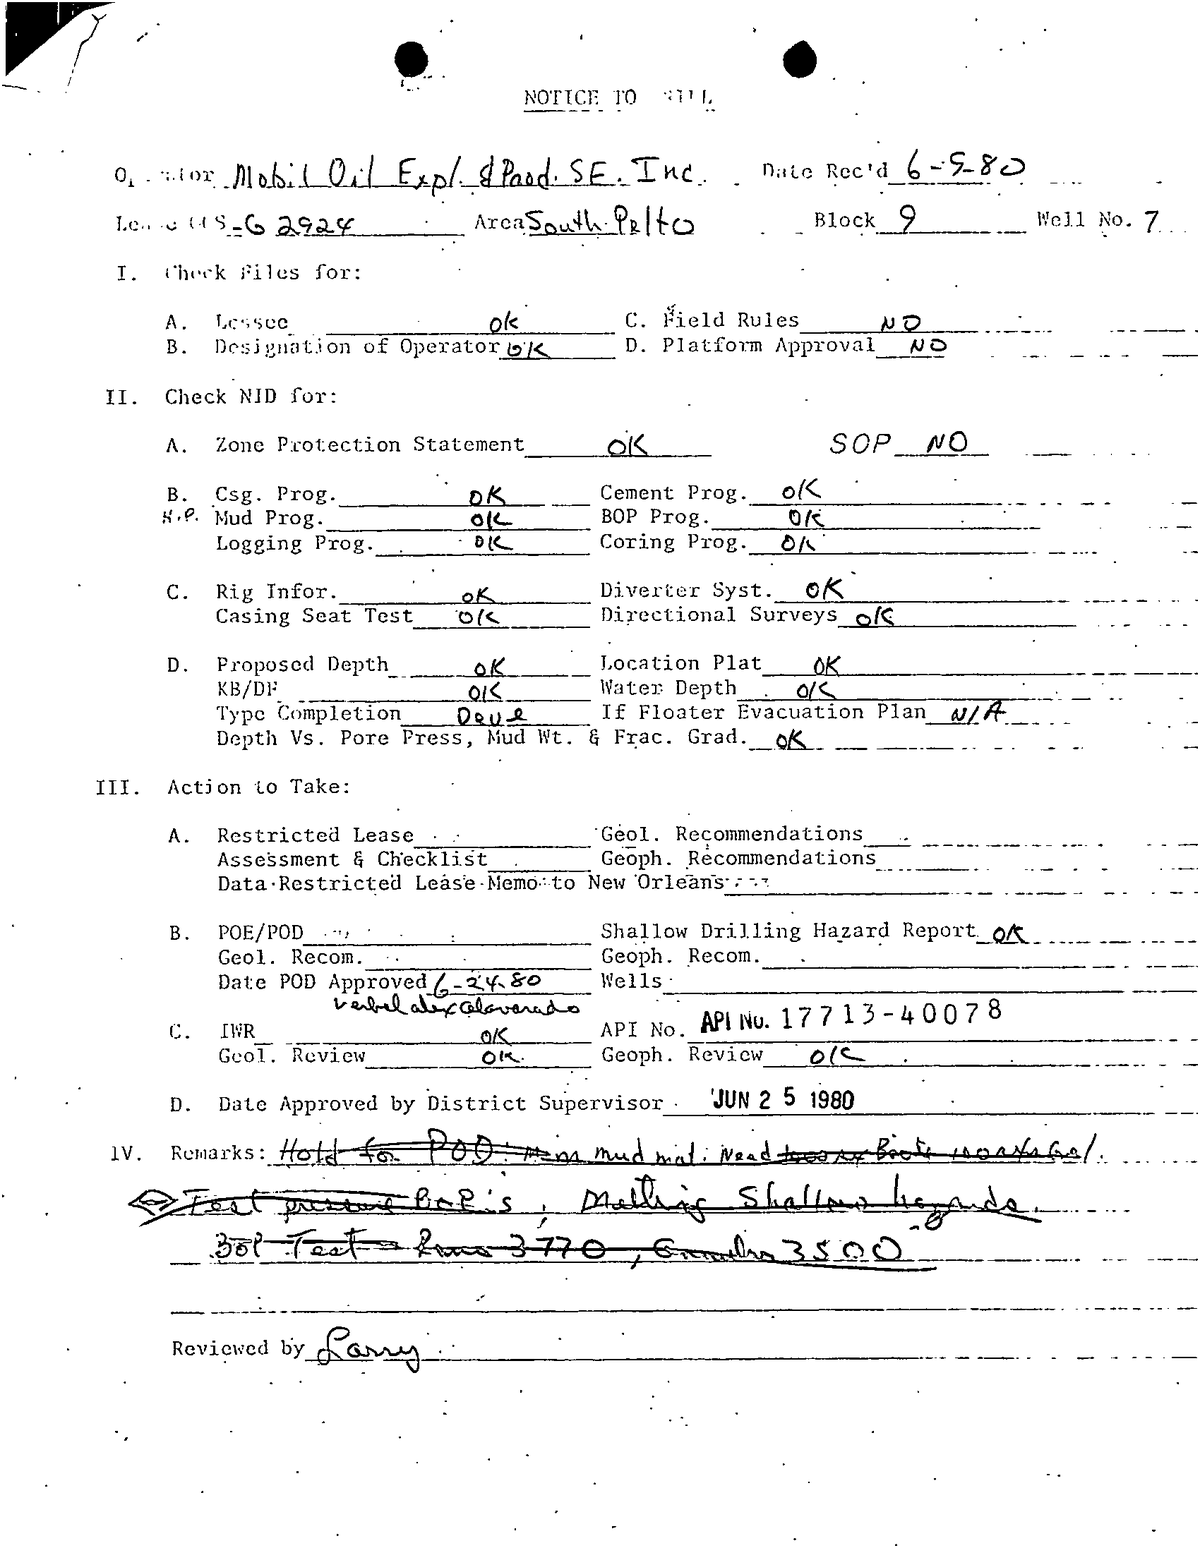 NOTICE TO
Mobil Oil Expl. & Prod. SE. Inc. Date Rec'd 6-9-80
-G 2924 Area South Pelto Block 9 Well No. 7
I. Check Files for:
A. Lessee OK C. Field Rules NO
B. Designation of Operator OK D. Platform Approval NO
II. Check NID for:
A. Zone Protection Statement OK SOP NO
B. Csg. Prog. OK Cement Prog. OK
H.P. Mud Prog. OK BOP Prog. OK
Logging Prog. OK Coring Prog. OK
C. Rig Infor. OK Diverter Syst. OK
Casing Seat Test OK Directional Surveys OK
D. Proposed Depth OK Location Plat OK
KB/DF OK Water Depth OK
Type Completion Deve If Floater Evacuation Plan N/A
Depth Vs. Pore Press, Mud Wt. & Frac. Grad. OK
III. Action to Take:
A. Restricted Lease Geol. Recommendations
Assessment & Checklist Geoph. Recommendations
Data Restricted Lease Memo to New Orleans
B. POE/POD Shallow Drilling Hazard Report OK
Geol. Recom. Geoph. Recom.
Date POD Approved 6-24-80 Wells
alex alvarado
C. IWR OK API No. API No. 17713-40078
Geol. Review OK Geoph. Review OK
D. Date Approved by District Supervisor JUN 25 1980
IV. Remarks: Hold for POD. mud mat. Need
Test pressure BOP's, Shallow hazards.
BOP Test Rams 3770, 3500
Reviewed by Larry